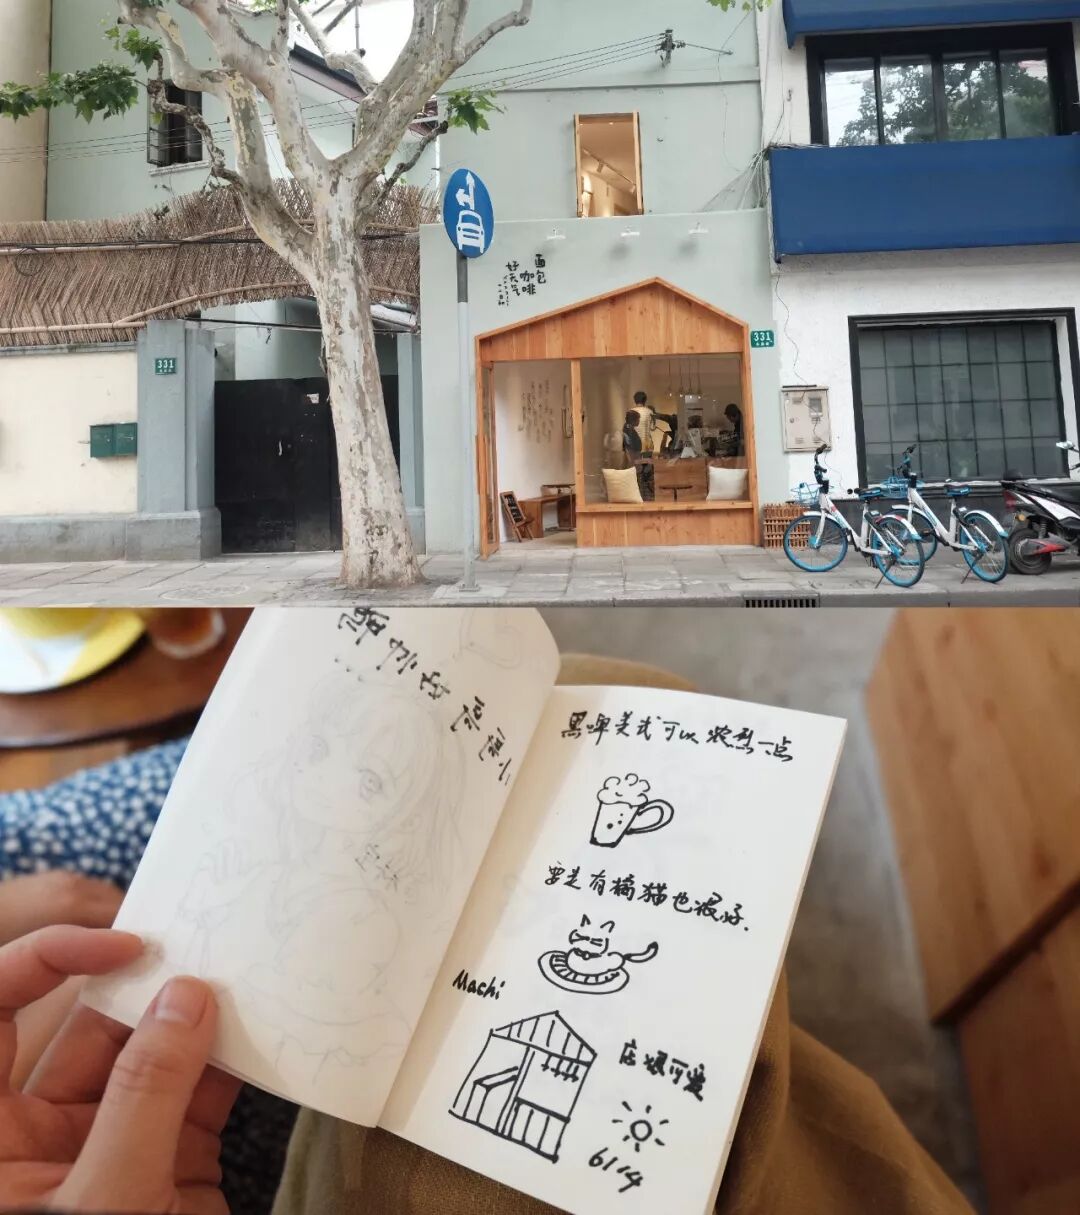 面包
咖啡
好天气
331
331
黑啤美式可以浓烈一点
要是有橘猫也很好.
Machi
店很可爱
6/14